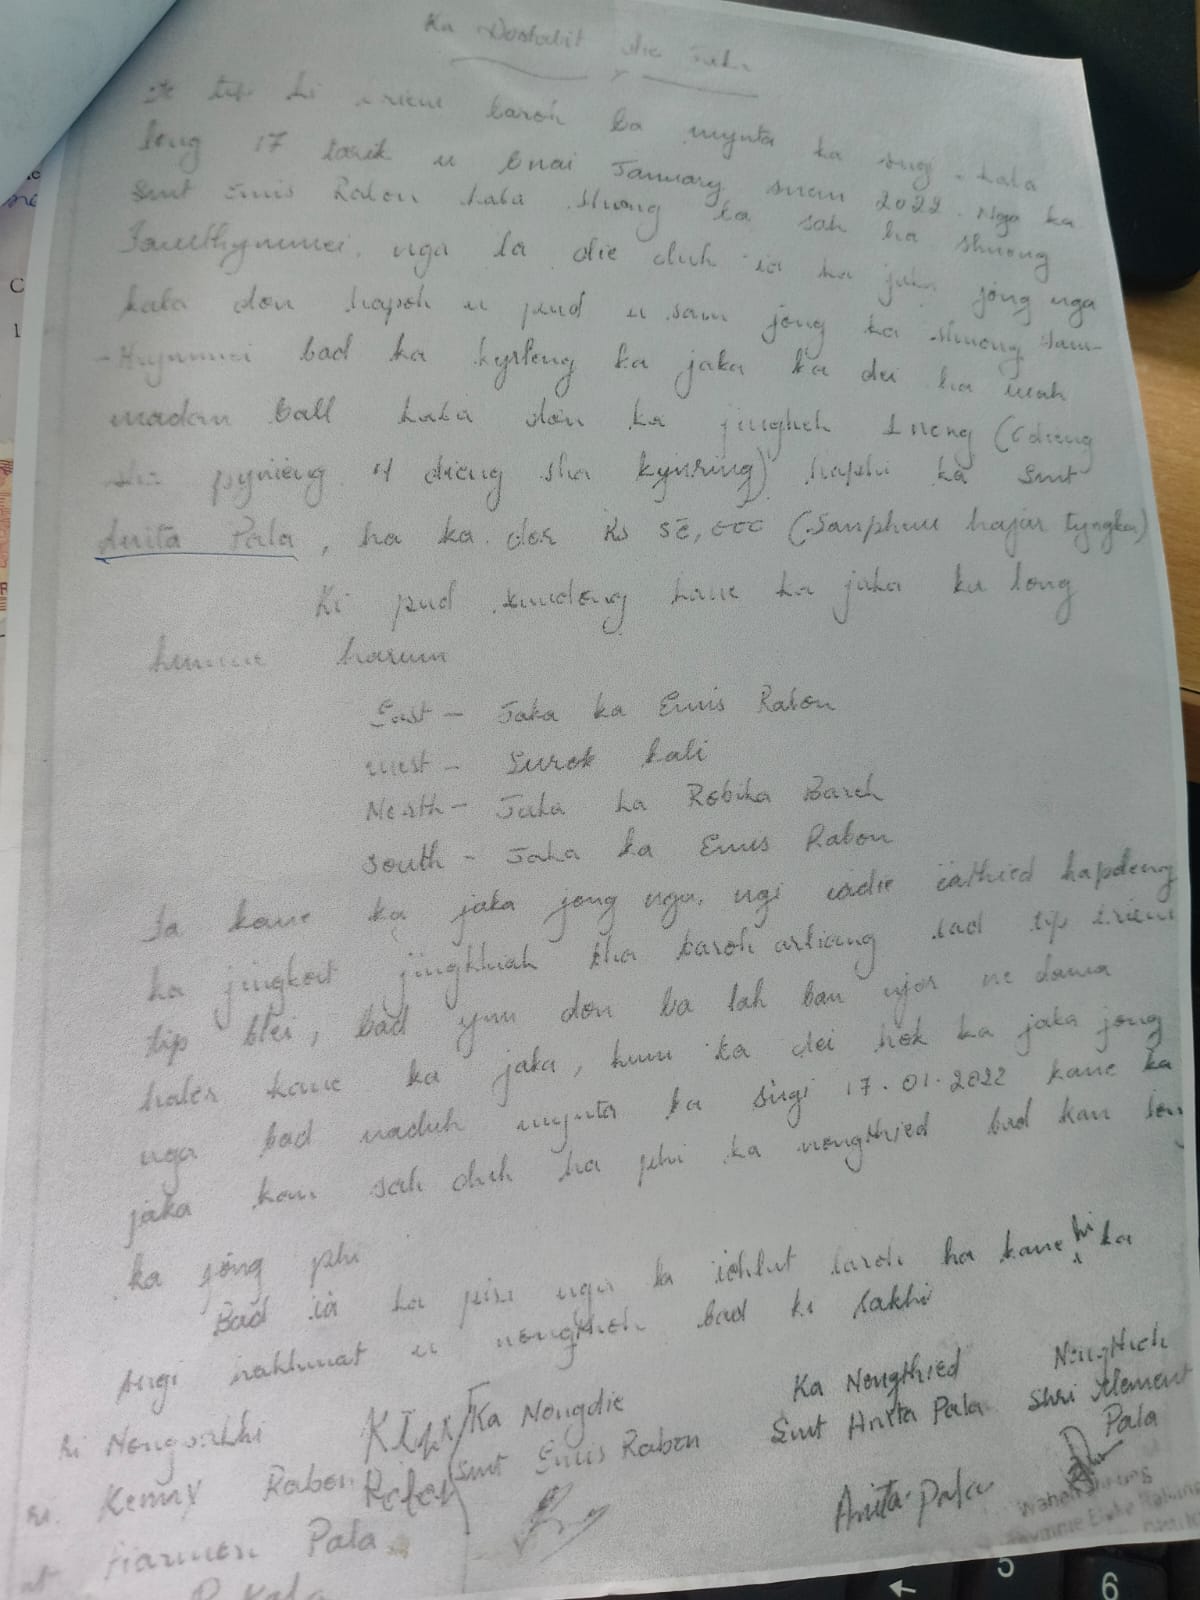 Ka Dostabit die Jaka
tip ki briew baroh ba mynta ka sngi kaba
long 17 tarik u bnai January snem 2022. Nga ka
Smt Emis Rabon kaba shong ba sah ha shnong
Iamthymmei, nga la die duh ia ka jaka jong nga
kaba don hapoh u pud u sam jong ka shnong Iam-
-thymmei bad ka kyrteng ka jaka ka dei ha wah
madan ball kaba don ka jingheh 1 neng (6 dieng
sha pyrneng 4 dieng sha kynring) haphi ka Smt
Anita Pala, ha ka dor Rs 50,000 (Sanphew hajar tyngka)
Ki pud kane ka jaka ka long
kumne harum
East - Jaka ka Emis Rabon
west - Surok kali
North - Jaka ka Robika Bareh
South - Jaka ka Emis Rabon
Ia kane ka jaka jong nga, ngi iadie iathied hapdeng
ka jingkoit jingkhiah bha baroh arliang bad tip briew
tip blei, bad ym don ba lah ban ujor ne dawa
halor kane ka jaka, kum ka dei hok ka jaka jong
nga bad naduh mynta ka sngi 17.01.2022 kane ka
jaka kan sah duh ha phi ka nongthied bad kan long
ka jong phi
Bad ia ka pisa nga la ioh baroh ha kane hi ka
sngi nakhmat u nongthoh bad ki sakhi
ki Nongsakhi Ka Nongdie Ka Nongthied Nongthoh
Kenny Rabon Smt Emis Rabon Smt Anita Pala Shri Klement
Pala
Pala Anita Pala